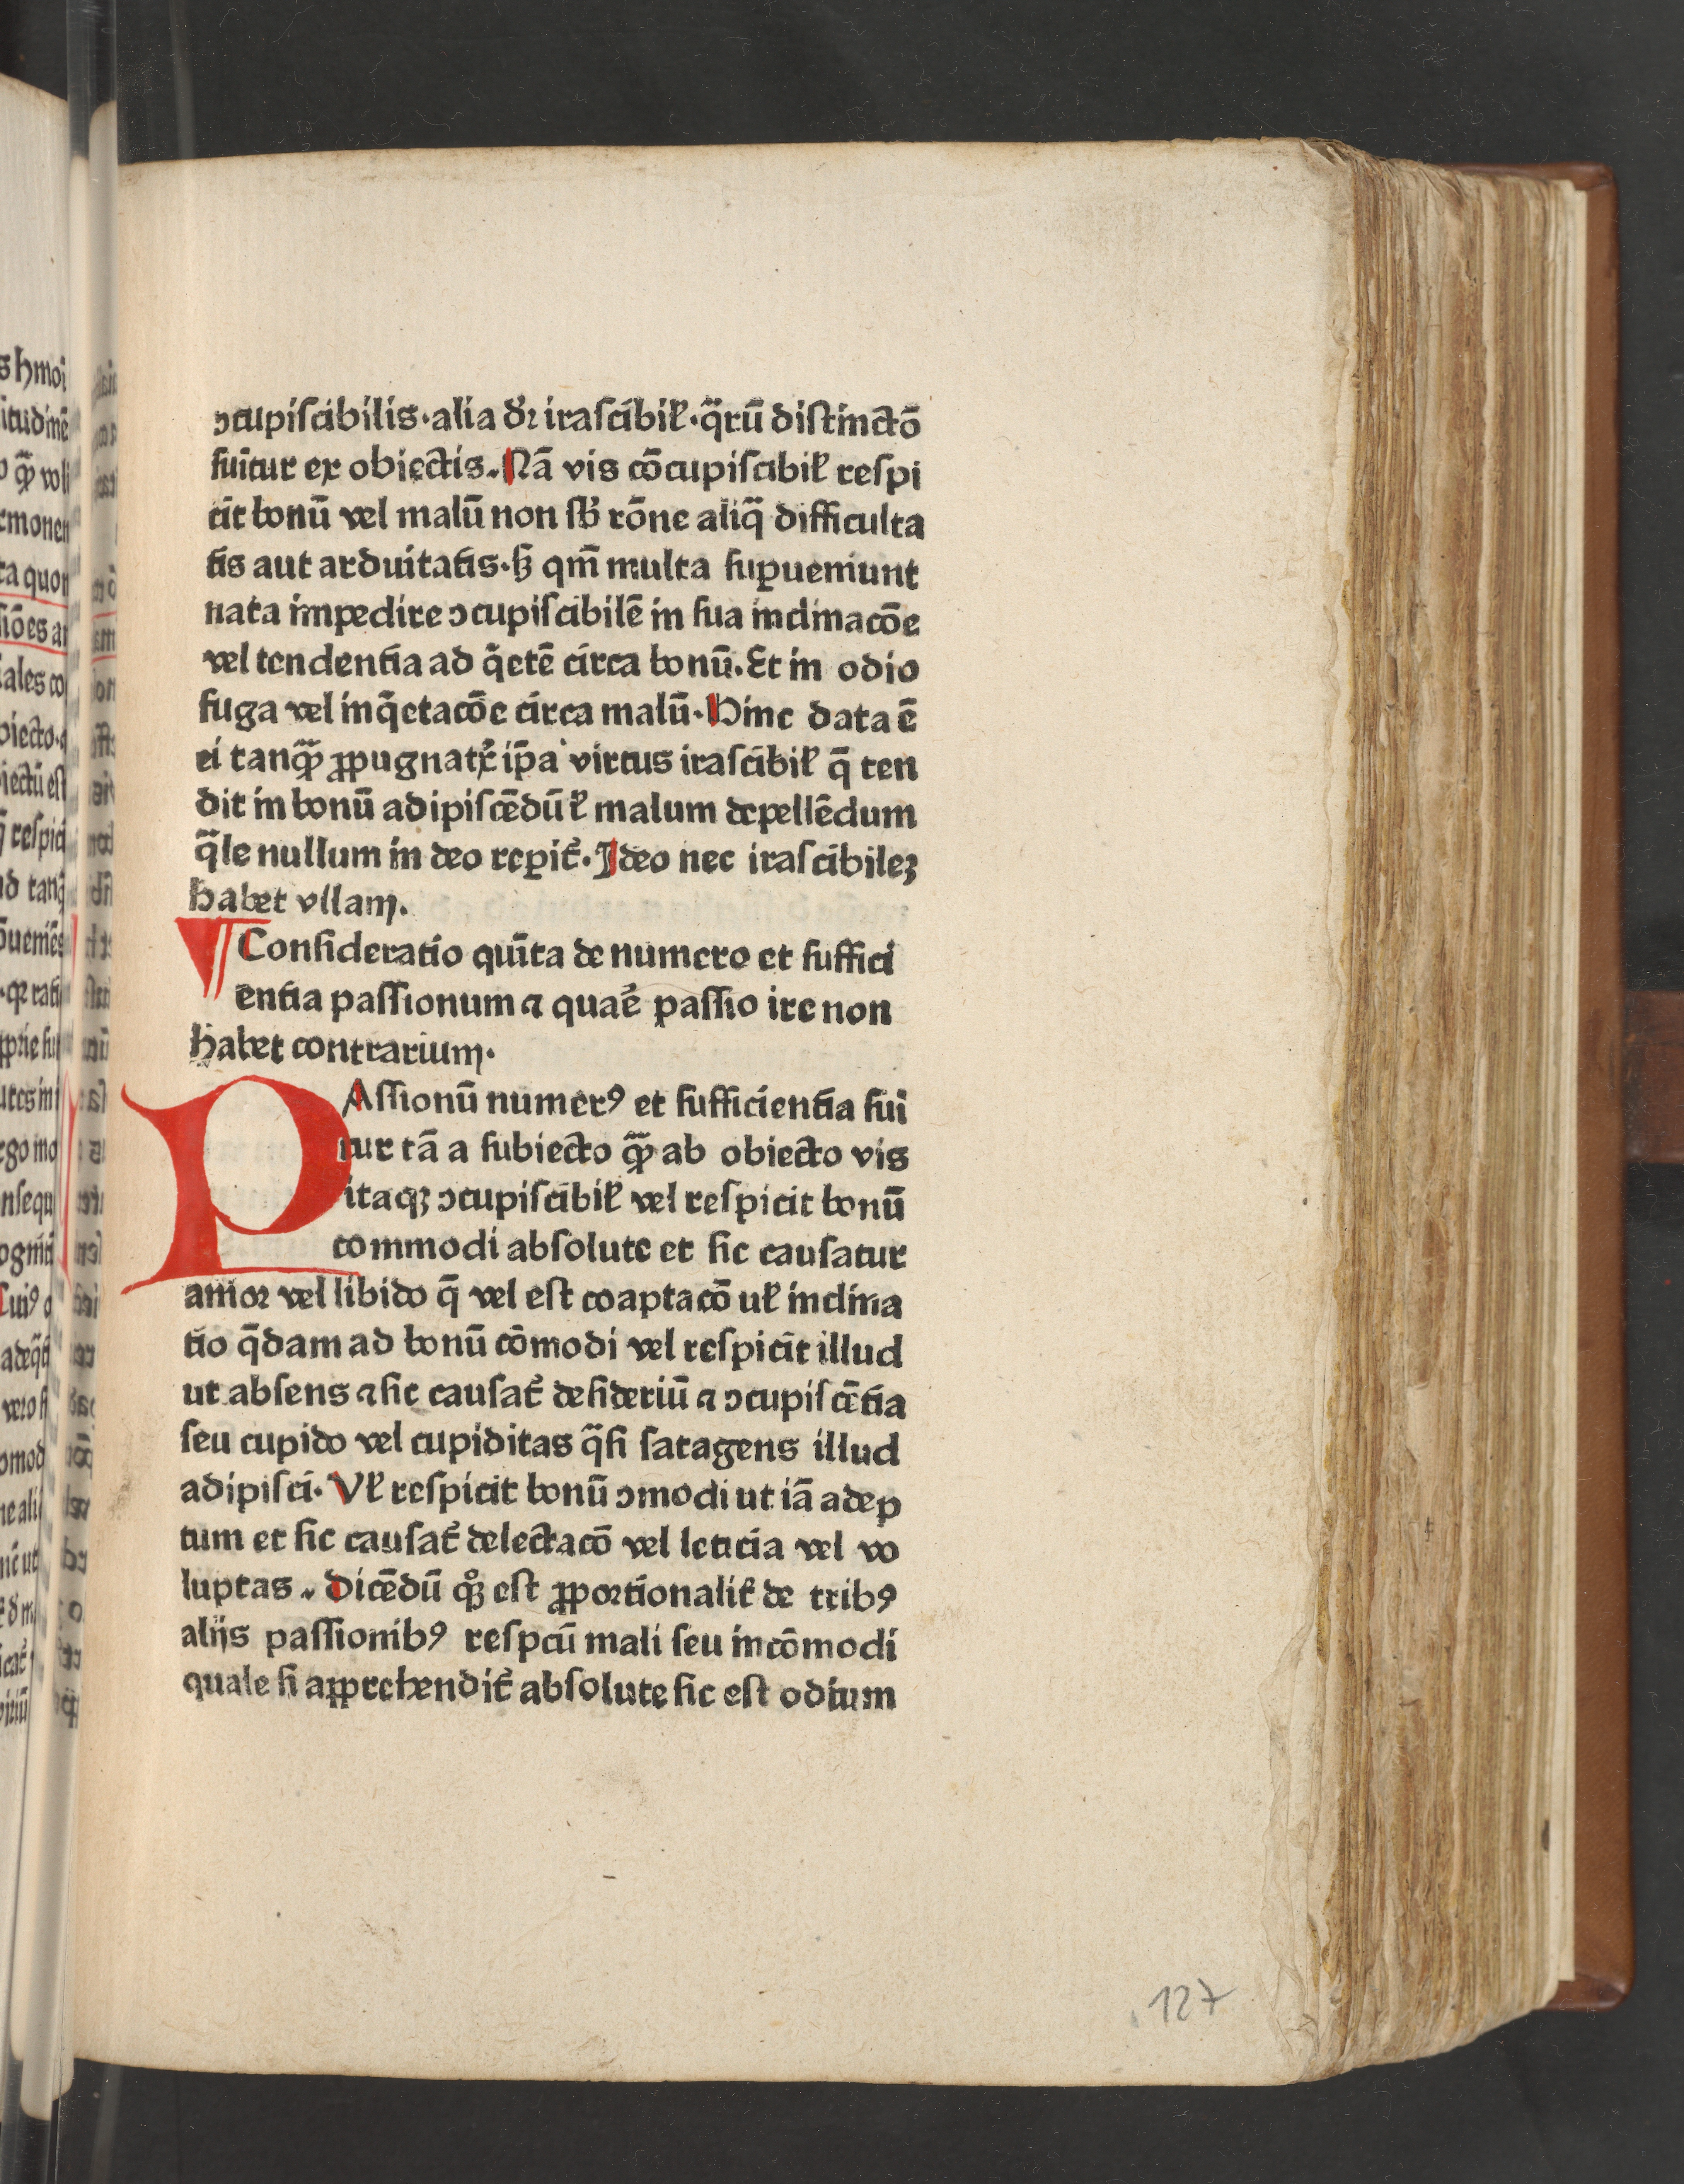 ↄcupiſcibilis·alia dꝛ̄ iraſcibil̛·q̄rū diſtinctō
ſuītur ex obiectis. Nā vis cōcupiſcibil̛ reſpi
cit bonū vel malū non ſb̛ rōne aliq̄ difficulta
tis aut arduitatis·ſꝫ qm̄ multa ſuꝑueniunt
nata impedire ↄcupiſcibilē in ſua inclinacōe
vel tendentia ad q̄etē circa bonū. Et in odio
fuga vel inq̄etacōe circa malū· Hinc data ē
ei tanqꝫ̄ ꝓpugnatͥx ip̄a virtus iraſcibil̛ q̄ ten
dit in bonū adipiſcēdū l̛ malum depellēdum
q̄le nullum in deo reꝑit᷑· Ideo nec iraſcibileꝫ
habet vllam.
Conſideratio quīta de numero et ſuffici
entia paſſionum ⁊ quare paſſio ire non
habet contrarium·
PAſſionū numerꝰ et ſufficientia ſui
tur tā a ſubiecto qꝫ̄ ab obiecto vis
itaqꝫ ↄcupiſcibil̛ vel reſpicit bonū
commodi abſolute et ſic cauſatur
amor vel libido q̄ vel eſt coaptacō ul̛ inclina
tio q̄dam ad bonū cōmodi vel reſpicit illud
ut abſens ⁊ ſic cauſat᷑ deſideriū ⁊ ↄcupiſcētia
ſeu cupido vel cupiditas q̄ſi ſatagens illud
adipiſci· Vl̛ reſpicit bonū ↄmodi ut iā adep
tum et ſic cauſat᷑ delectacō vel leticia vel vo
luptas. Dicēdū qꝫͦ eſt ꝓportionalit̛ de tribꝰ
aliis paſſionibꝰ reſpcū mali ſeu incōmodi
quale ſi apprehendit᷑ abſolute ſic eſt odium
127